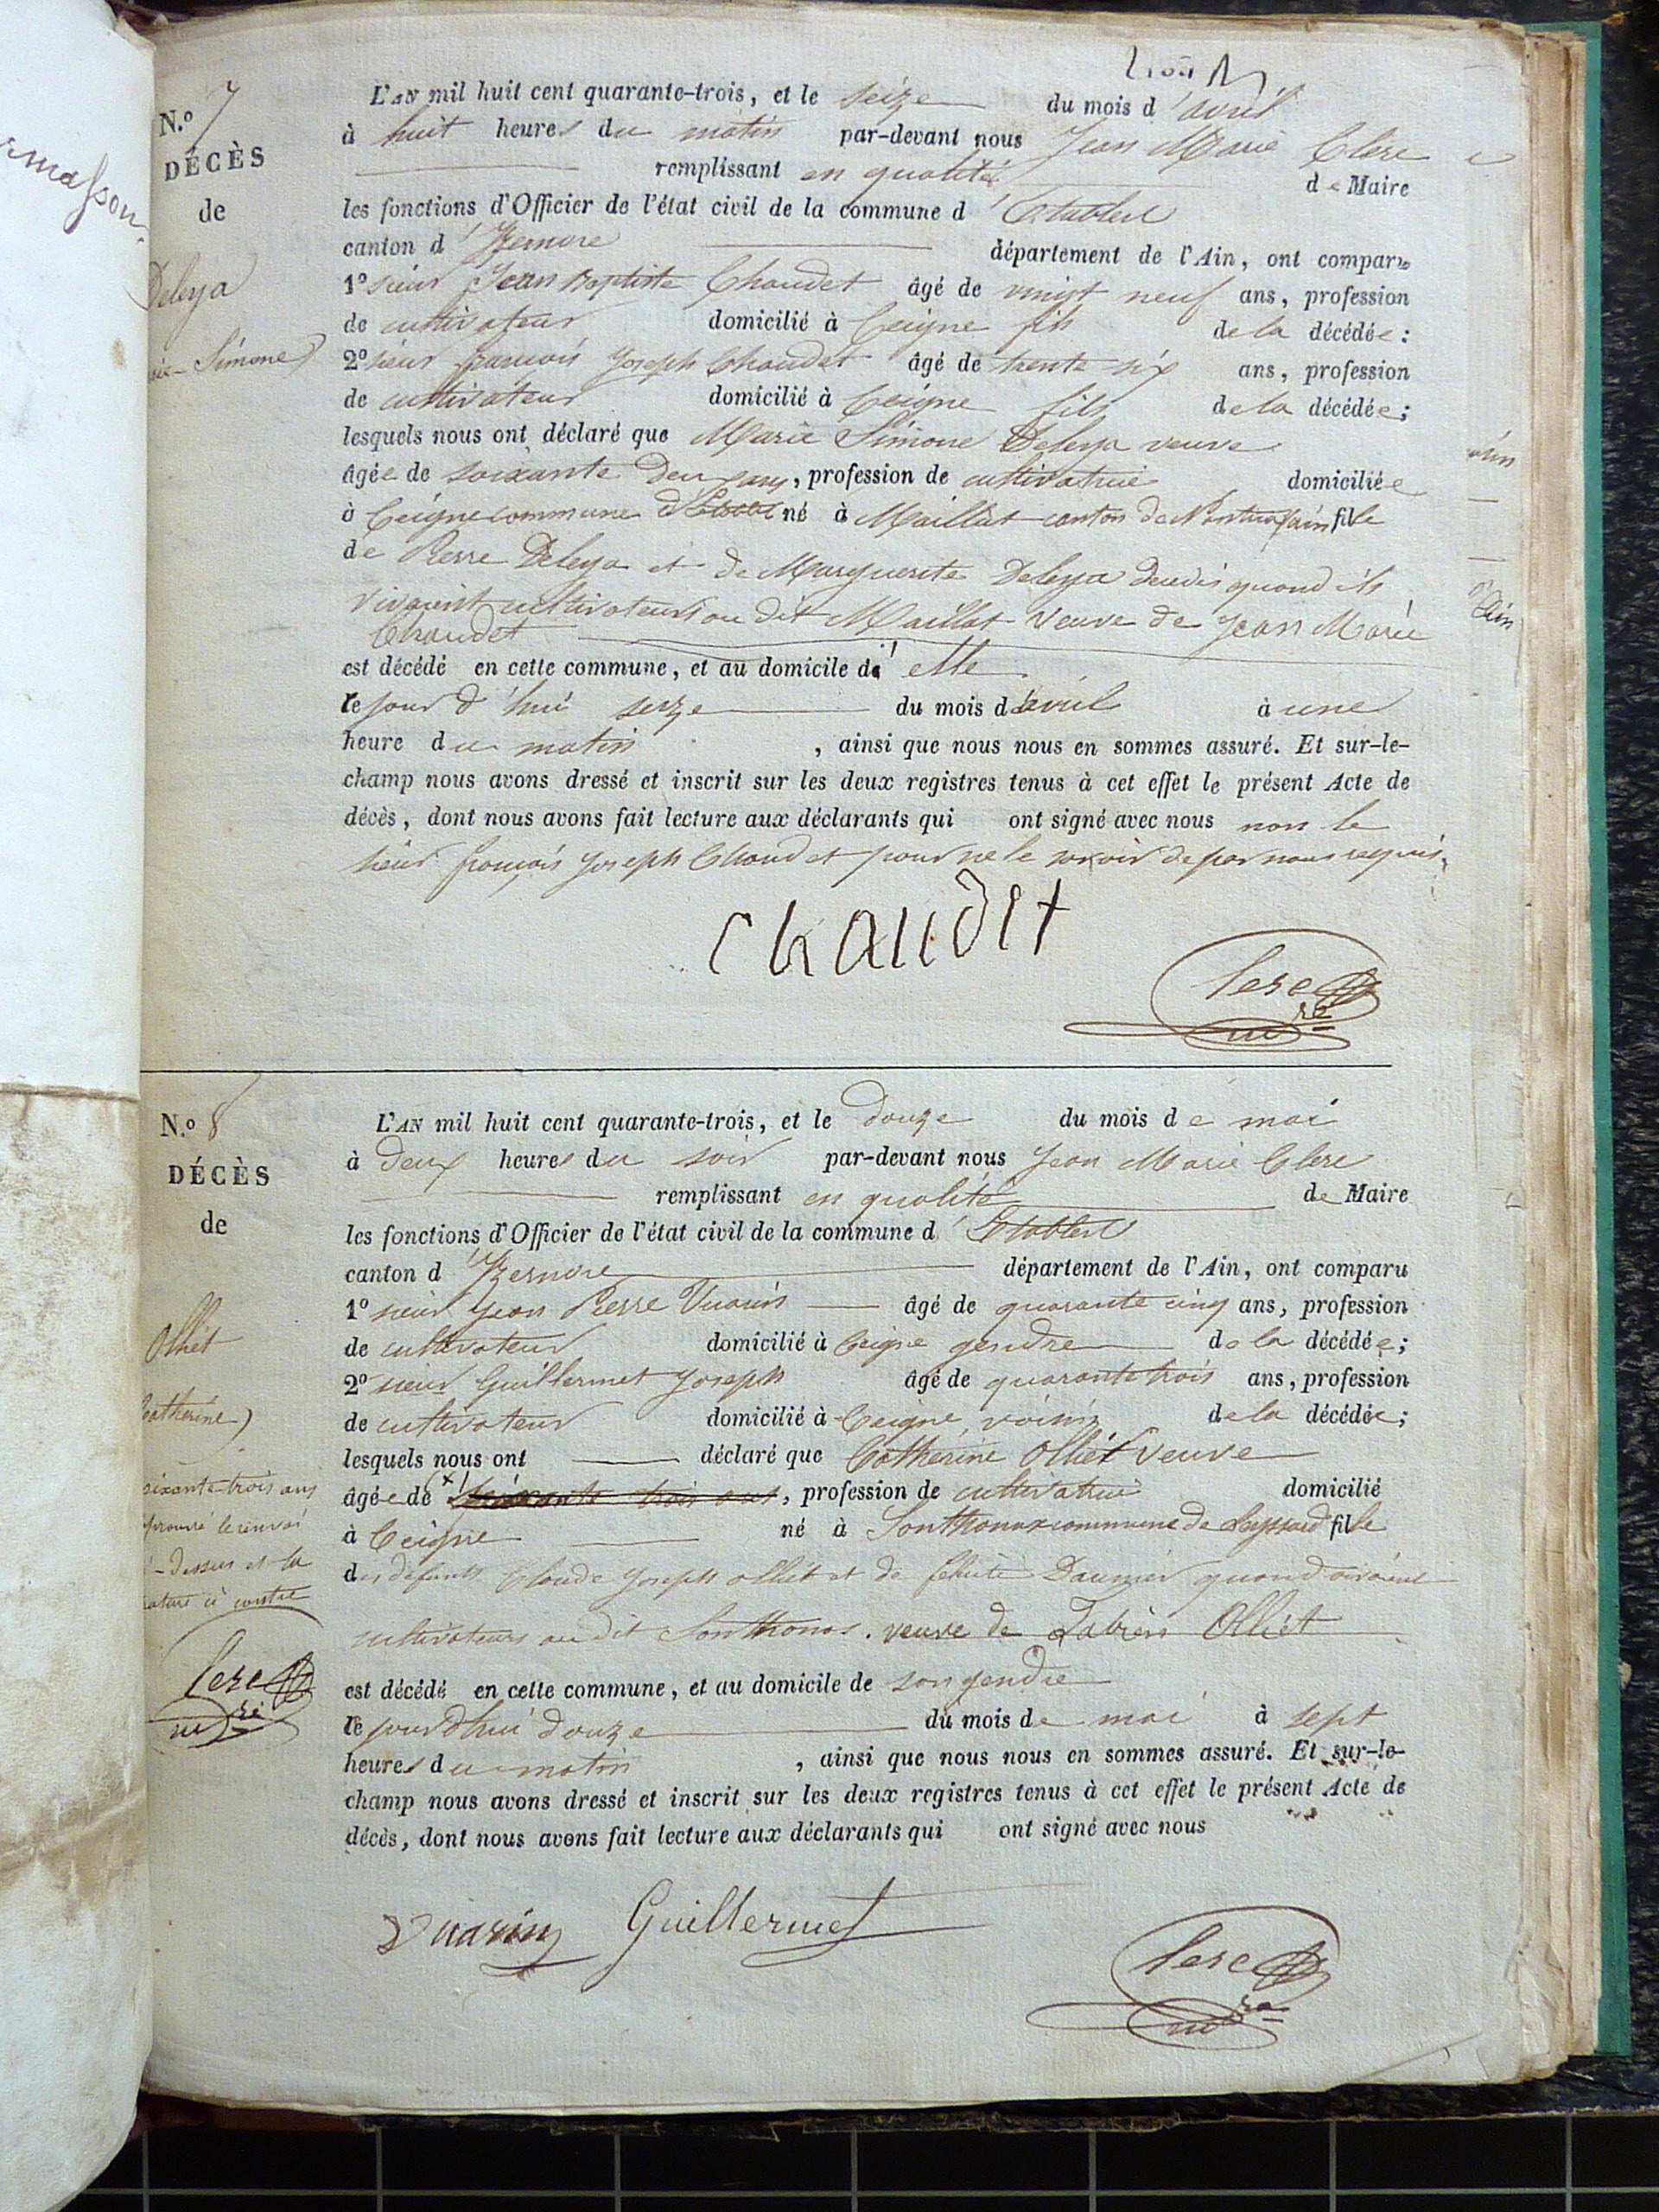 N.o 7
DÉCÈS
de
Deleya
Simone)
L'AN mil huit cent quarante-trois, et le seize du mois d'avril
à huit heures du matin par-devant nous Jean Marie Clerc
remplissant en qualité de Maire
les fonctions d'Officier de l'état civil de la commune d'Etables
canton d'Izernore département de l'Ain, ont comparu
1o sieur Jean Baptiste Chaudet âgé de vingt neuf ans, profession
de cultivateur domicilié à Ceigne fils de la décédée:
2o sieur françois Joseph Chaudet âgé de trente six ans, profession
de cultivateur domicilié à Ceigne fils de la décédée;
lesquels nous ont déclaré que Marie Simone Deleya veuve
âgée de soixante deux ans, profession de cultivatrice domiciliée
à Ceigne commune d'Etables né à Maillat canton de Nantua (ain) fille
de Pierre Deleya et de Marguerite Deleya décédés quand ils
vivaient cultivateurs au dit Maillat veuve de Jean Marie
Chaudet
est décédé en cette commune, et au domicile d'elle
le jour d'hui seize du mois d'avril à une
heure du matin, ainsi que nous nous en sommes assuré. Et sur-le-
champ nous avons dressé et inscrit sur les deux registres tenus à cet effet le présent Acte de
décès, dont nous avons fait lecture aux déclarants qui ont signé avec nous non le
sieur françois Joseph Chaudet pour ne le savoir de par nous requis.
Chaudet
Clerc
N.o 8
DÉCÈS
de
Olliet
Catherine)
soixante-trois ans
approuvé le renvoi
ci-dessus et la
rature ci contre
Clerc
L'AN mil huit cent quarante-trois, et le douze du mois de mai
à deux heures du soir par-devant nous Jean Marie Clerc
remplissant en qualité de Maire
les fonctions d'Officier de l'état civil de la commune d'Etables
canton d'Izernore département de l'Ain, ont comparu
1o sieur Jean Pierre Vuarin âgé de quarante cinq ans, profession
de cultivateur domicilié à Ceigne gendre de la décédée;
2o sieur Guillermet Joseph âgé de quarante trois ans, profession
de cultivateur domicilié à Ceigne voisin de la décédée;
lesquels nous ont déclaré que Catherine Olliet veuve
âgée de (x) soixante trois ans, profession de cultivatrice domicilié
à Ceigne né à Sonthonax commune de Leyssard fille
des défunts Claude Joseph Olliet et de felicité Daumier quand vivaient
cultivateurs au dit Sonthonas. veuve de Fabien Olliet
est décédé en cette commune, et au domicile de son gendre
le jourd'hui douze du mois de mai à sept
heures du matin, ainsi que nous nous en sommes assuré. Et sur-le-
champ nous avons dressé et inscrit sur les deux registres tenus à cet effet le présent Acte de
décès, dont nous avons fait lecture aux déclarants qui ont signé avec nous
Vuarin Guillermet
Clerc